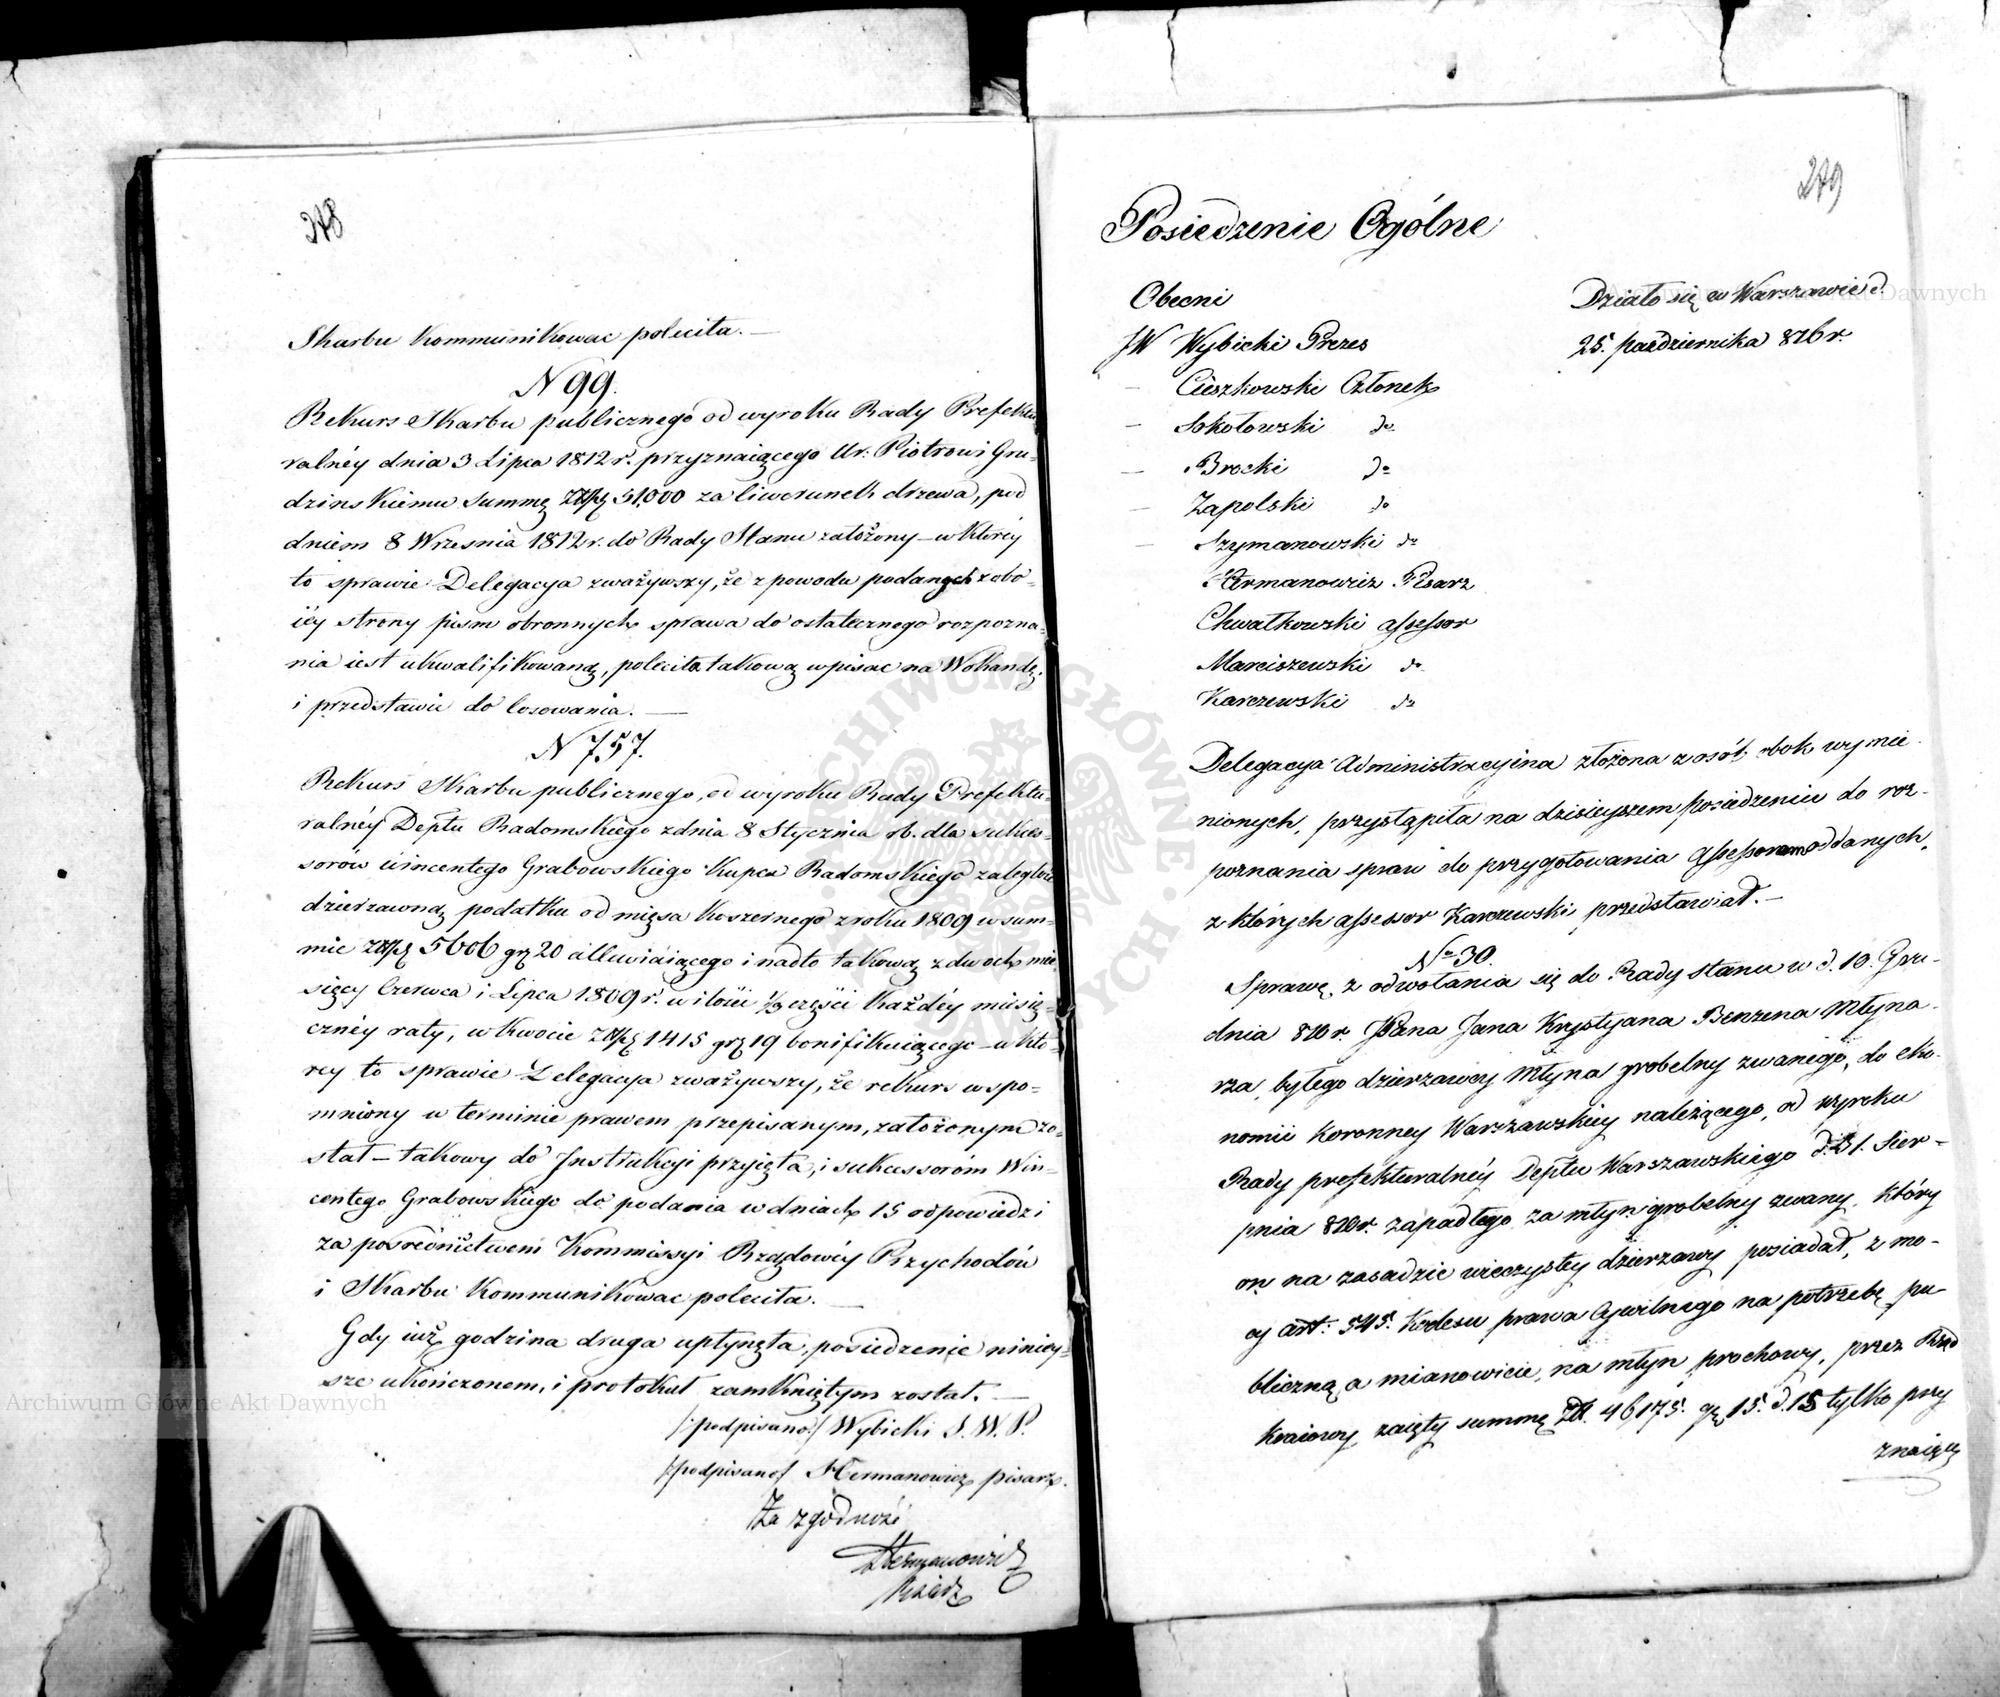 248
Skarbu Kommunikowac polecita. —
N 99.
Rekurs Skarbu publicznego od wyroku Rady Prefektu
ralnéy dnia 3 Lipca 1812 r. przyznaiącego Ur. Piotrowi Gru-
dzinskiemu summę Złpł 51,000 za liwerunek drzewa, pod
dniem 8 Wrzesnia 1812 r. do Rady Stanu założony – w którey
to sprawie Delegacya zważywszy, że z powodu podanych z obo-
iéy strony pism obronnych sprawa do ostatecznego rozpozna-
nia iest ukwalifikowaną, poleciła takową wpisac na Wokandę
i przedstawić do losowania. —
N 757.
Rekurs Skarbu publicznego, od wyroku Rady Prefektu-
ralnéy Deptu Radomskiego z dnia 8 Stycznia rb. dla sukces-
sorów Wincentego Grabowskiego Kupca Radomskiego zaległość
dzierzawną podatku od mięsa Koszernego z roku 1809 w sum-
mie Złpł 5606 gr 20 alluwiaiącego i nadto takową z dwoch mie-
sięcy Czerwca i Lipca 1809 r. w ilości 1/3 części każdéy miesię-
cznéy raty, w kwocie Złpł 1415 gr 19 bonifikuiącego – w któ-
rey to sprawie Delegacya zważywszy, że rekurs wspo-
mniony w terminie prawem przepisanym, założonym zo-
stał – takowy do Instrukcyi przyięła, i sukcessoróm Win-
centego Grabowskiego do podania w dniach 15 odpowiedzi
za pośrednictwem Kommissyi Rządowéy Przychodów
i Skarbu Kommunikowac poleciła. —
Gdy iuż godzina druga upłynęła, posiedzenie niniey-
sze ukończonem, i protokuł zamkniętym został. —
/:podpisano:/ Wybicki S. W. P.
/:podpisano/ Hermanowicz pisarz.
Za zgodność
Hermanowicz
Pisarz
249
Posiedzenie Ogólne
Obecni
JW Wybicki Prezes
— Cieszkowski Członek
— Sokołowski do
— Brocki do
— Zapolski do
— Szymanowski do
Hermanowicz Pisarz
Chwałkowski assessor
Marciszewski do
Karczewski do
Działo się w Warszawie d.
25. pazdziernika 816 r.
Delegacya Administracyina złożona z osób obok wymie-
nionych, przystąpiła na dzisieyszem posiedzeniu do roz-
poznania spraw do przygotowania assessorom oddanych,
z których assessor Karczewski przedstawiał. —
No 30.
Sprawę z odwołania się do Rady stanu w d. 10. Gru-
dnia 810 r. Pana Jana Krystyana Benzena Młyna-
rza, byłego dzierzawcy Młyna grobelny zwanego, do eko-
nomii Koronney Warszawskiey należącego, od wyroku
Rady prefekturalnéy Deptu Warszawskiego d. 31. Sier-
pnia 810 r. zapadłego za młyn grobelny zwany, który
on na zasadzie wieczystey dzierzawy posiadał, z mo-
cy art: 545. Kodexu prawa Cywilnego na potrzebę pu-
bliczną, a mianowicie, na młyn prochowy, przez Rząd
kraiowy zaięty summę Zł. 46175. gr. 15. d. 15 tylko przy
znaiący
Archiwum Główne Akt Dawnych